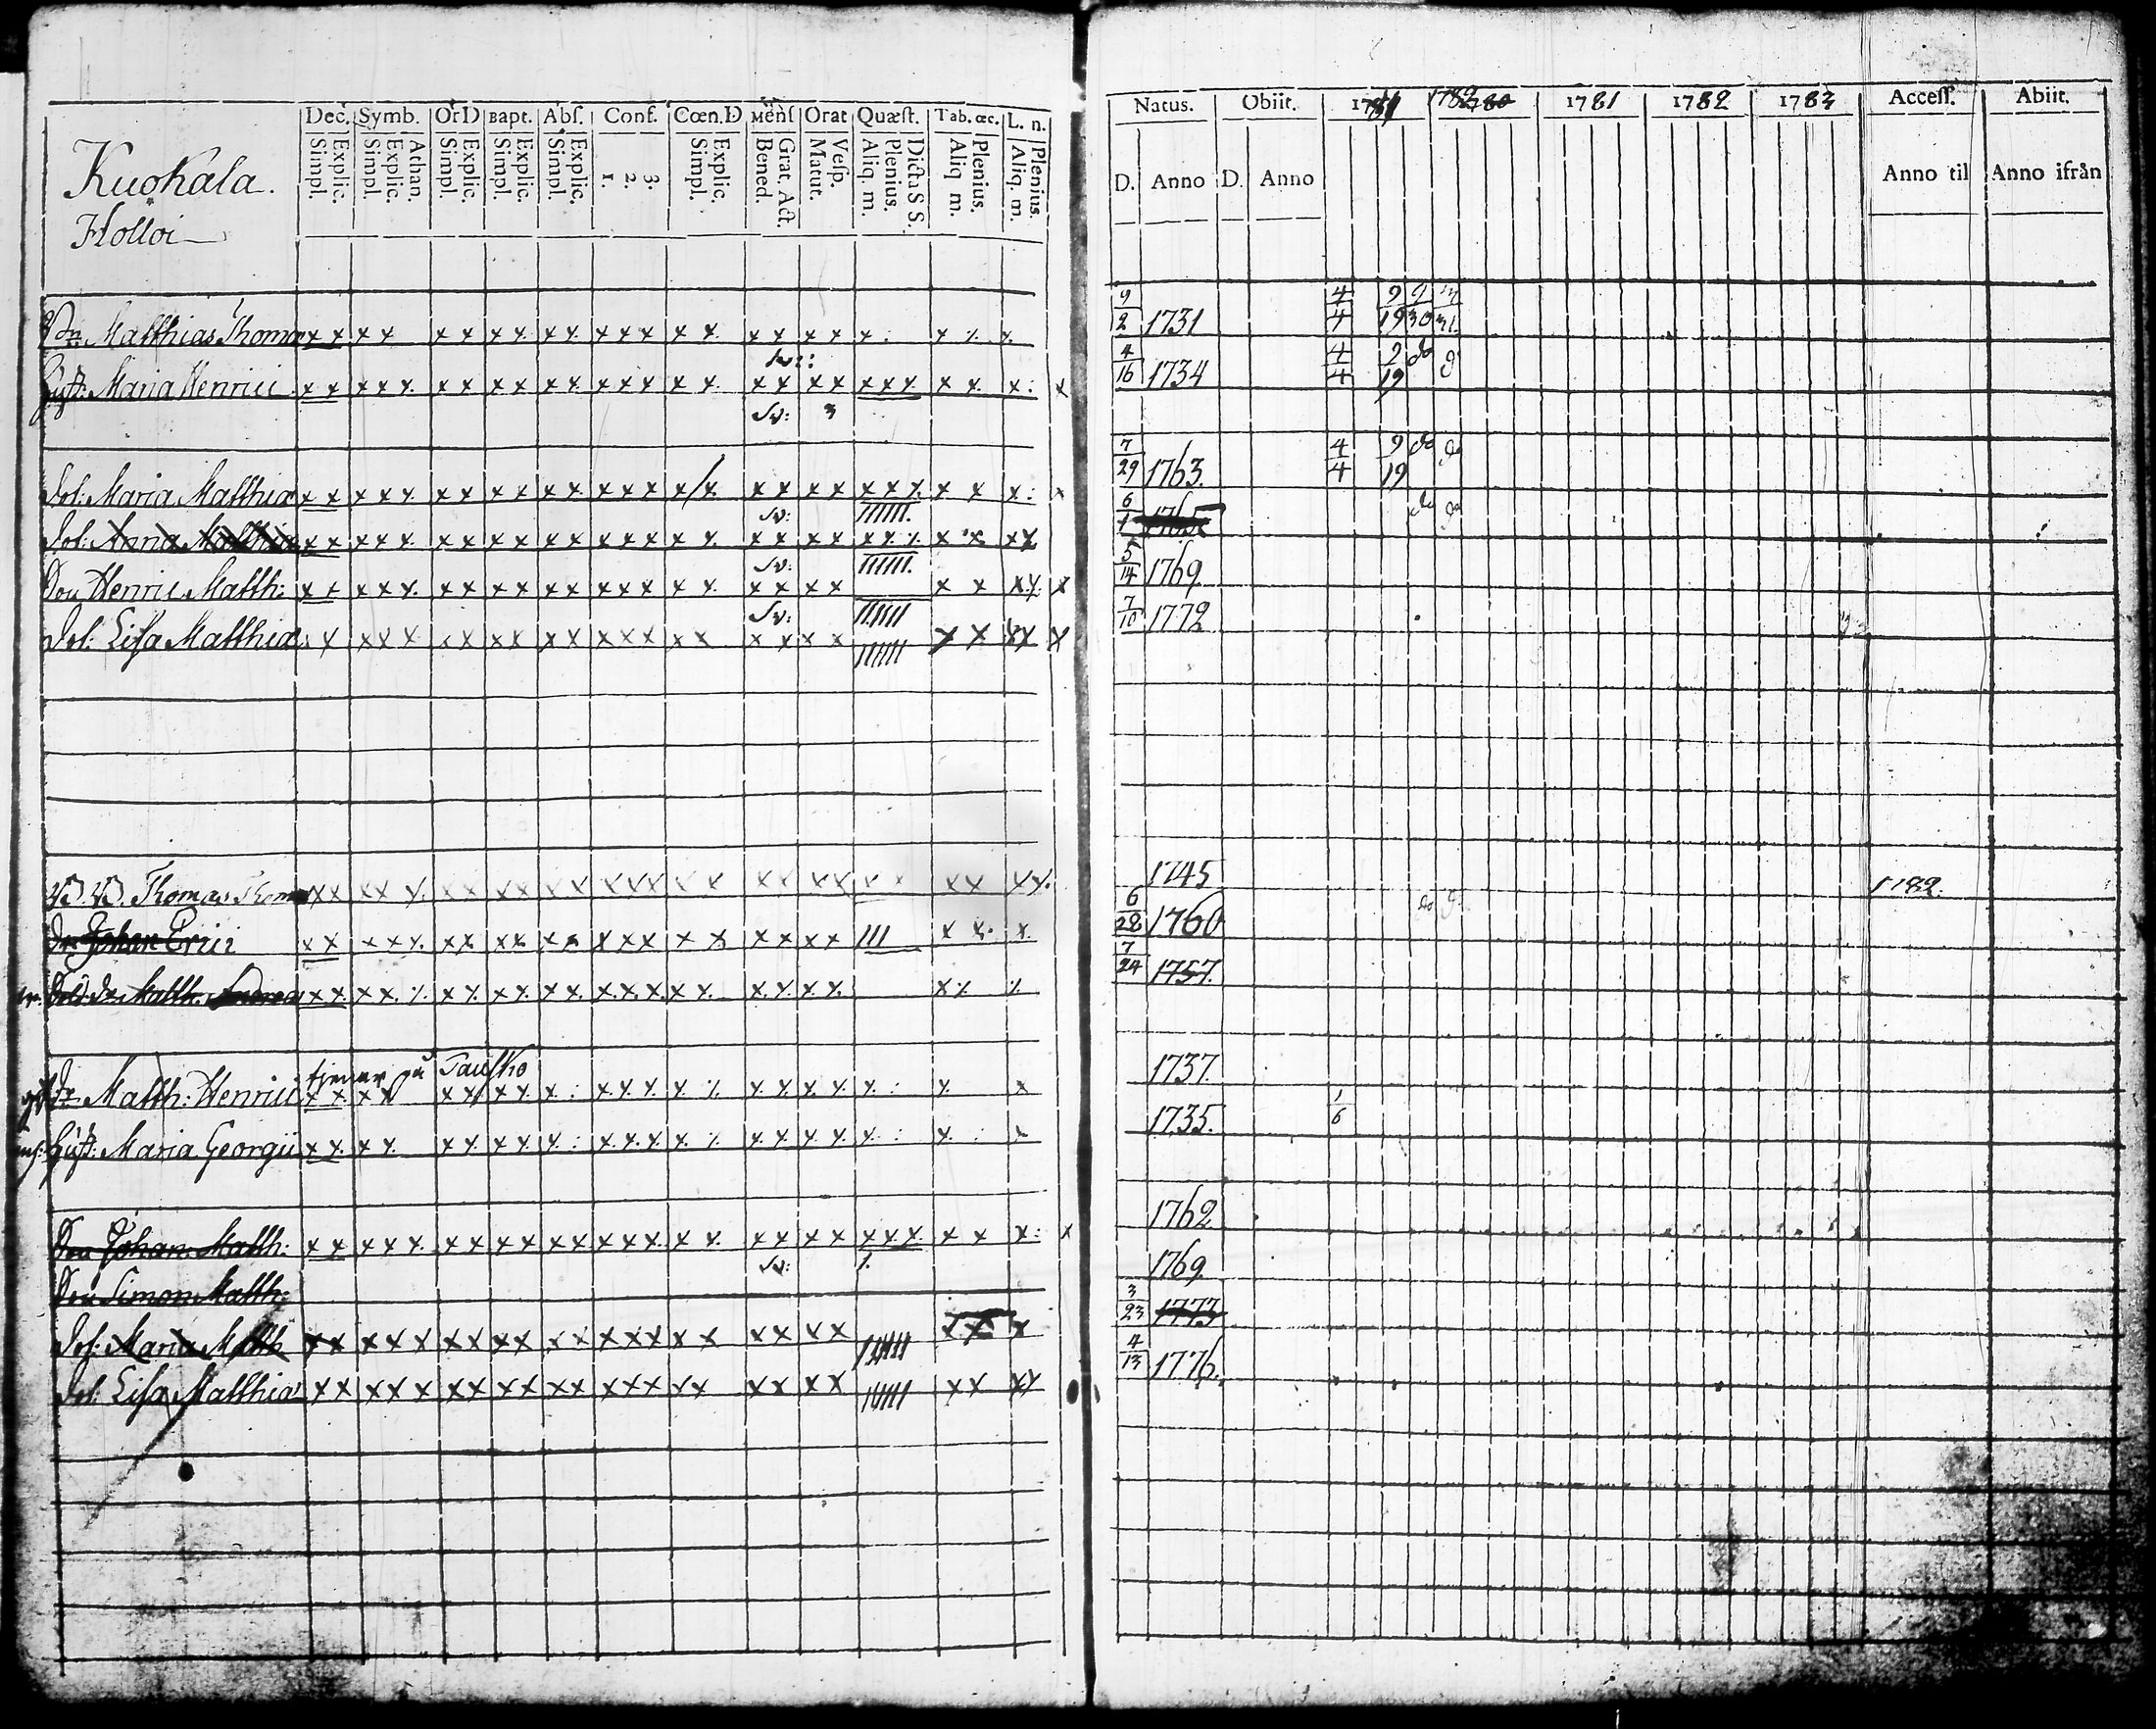 Kuokala.
Holloi
Dec. Symb. Or D Bapt. Abs. Conf. Cœn.D Mens Orat Quæst. Tab. œc. L. n.
Simpl. Explic. Simpl. Explic. Athan. Simpl. Explic. Simpl. Explic. Simpl. Explic. 1. 2. 3. Simpl. Explic. Bened. Grat. Act. Matut. Vesp. Aliq. m. Plenius. Dicta S S. Aliq m. Plenius. Aliq. m. Plenius.
Natus. Obiit. 1782 1780 1781 1782 1783 Access. Abiit.
D. Anno D. Anno Anno til Anno ifrån
Matthias Thomæ 9/2 1731 4/4 9 19 30
Hust: Maria Henrici 4/16 1734 4/4 2 19 do
Sv: 3
Dot: Maria Matthiæ 7/29 1763. 4/4 9 19 do do
Sv:
Dot: Anna Matthiæ 6/1 1765 do do
Sv:
Son Henric Matth: 5/14 1769
Sv:
Dot: Lisa Matthiæ 7/10 1772
Thomas Thom 1745 1782.
Dr Johan Erici 6/22 1760 do
Sold. Dr. Matth. Andreæ 7/24 1757.
tjenar på Taulho
Dr. Matth: Henrici 1737.
Hust: Maria Georgii 1735. 1/6
Son Johan Matth: 1762
Sv:
Son Simon Matth: 1769
Dot: Maria Matth 3/23 1773
Dot: Lisa Matthiæ 4/13 1776.